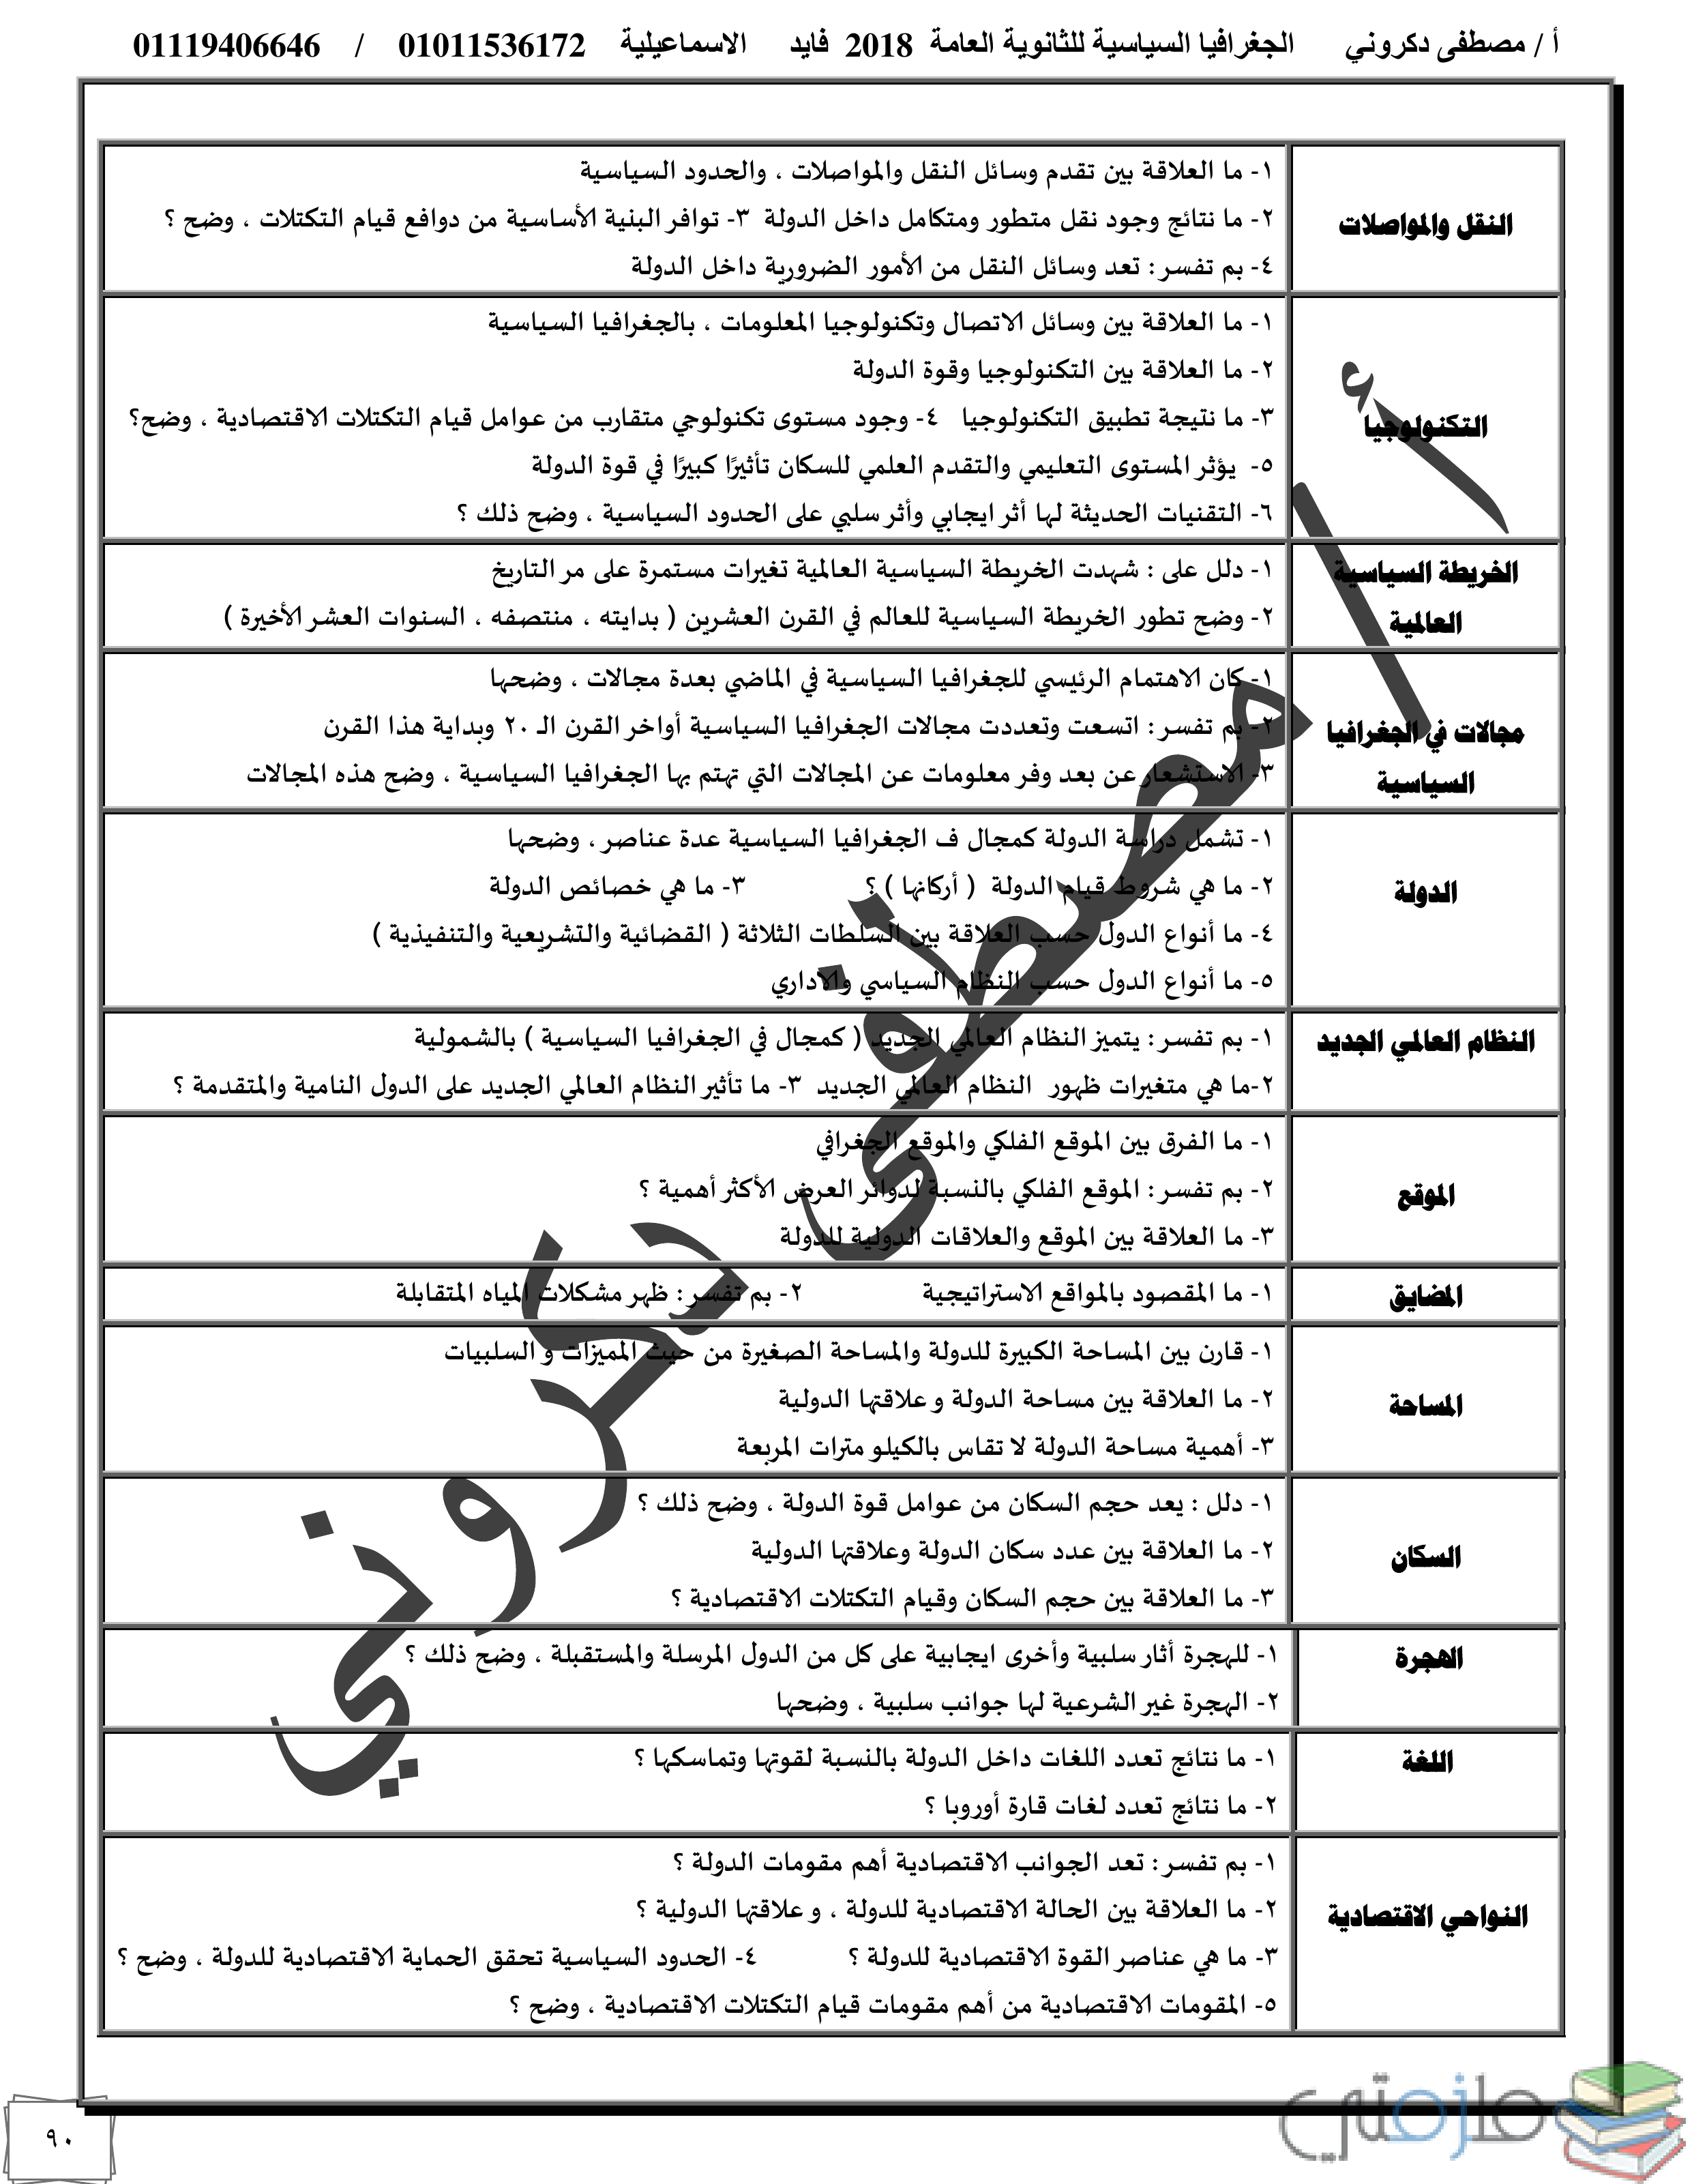 أ / مصطفى دكروني الجغرافيا السياسية للثانوية العامة 2018 فايد الاسماعيلية 01011536172 / 01119406646
النقل والمواصلات
١- ما العلاقة بين تقدم وسائل النقل والمواصلات ، والحدود السياسية
٢- ما نتائج وجود نقل متطور ومتكامل داخل الدولة ٣- توافر البنية الأساسية من دوافع قيام التكتلات ، وضح ؟
٤- بم تفسر : تعد وسائل النقل من الأمور الضرورية داخل الدولة
التكنولوجيا
١- ما العلاقة بين وسائل الاتصال وتكنولوجيا المعلومات ، بالجغرافيا السياسية
٢- ما العلاقة بين التكنولوجيا وقوة الدولة
٣- ما نتيجة تطبيق التكنولوجيا ٤- وجود مستوى تكنولوجي متقارب من عوامل قيام التكتلات الاقتصادية ، وضح؟
٥- يؤثر المستوى التعليمي والتقدم العلمي للسكان تأثيرًا كبيرًا في قوة الدولة
٦- التقنيات الحديثة لها أثر ايجابي وأثر سلبي على الحدود السياسية ، وضح ذلك ؟
الخريطة السياسية
العالمية
١- دلل على : شهدت الخريطة السياسية العالمية تغيرات مستمرة على مر التاريخ
٢- وضح تطور الخريطة السياسية للعالم في القرن العشرين ( بدايته ، منتصفه ، السنوات العشر الأخيرة )
مجالات في الجغرافيا
السياسية
١- كان الاهتمام الرئيسي للجغرافيا السياسية في الماضي بعدة مجالات ، وضحها
٢- بم تفسر : اتسعت وتعددت مجالات الجغرافيا السياسية أواخر القرن الـ ٢٠ وبداية هذا القرن
٣- الاستشعار عن بعد وفر معلومات عن المجالات التي تهتم بها الجغرافيا السياسية ، وضح هذه المجالات
الدولة
١- تشمل دراسة الدولة كمجال ف الجغرافيا السياسية عدة عناصر ، وضحها
٢- ما هي شروط قيام الدولة ( أركانها ) ؟ ٣- ما هي خصائص الدولة
٤- ما أنواع الدول حسب العلاقة بين السلطات الثلاثة ( القضائية والتشريعية والتنفيذية )
٥- ما أنواع الدول حسب النظام السياسي والاداري
النظام العالمي الجديد
١- بم تفسر : يتميز النظام العالمي الجديد ( كمجال في الجغرافيا السياسية ) بالشمولية
٢-ما هي متغيرات ظهور النظام العالمي الجديد ٣- ما تأثير النظام العالمي الجديد على الدول النامية والمتقدمة ؟
الموقع
١- ما الفرق بين الموقع الفلكي والموقع الجغرافي
٢- بم تفسر : الموقع الفلكي بالنسبة لدوائر العرض الأكثر أهمية ؟
٣- ما العلاقة بين الموقع والعلاقات الدولية للدولة
المضايق
١- ما المقصود بالمواقع الاستراتيجية ٢- بم تفسر : ظهر مشكلات المياه المتقابلة
المساحة
١- قارن بين المساحة الكبيرة للدولة والمساحة الصغيرة من حيث المميزات و السلبيات
٢- ما العلاقة بين مساحة الدولة و علاقتها الدولية
٣- أهمية مساحة الدولة لا تقاس بالكيلو مترات المربعة
السكان
١- دلل : يعد حجم السكان من عوامل قوة الدولة ، وضح ذلك ؟
٢- ما العلاقة بين عدد سكان الدولة وعلاقتها الدولية
٣- ما العلاقة بين حجم السكان وقيام التكتلات الاقتصادية ؟
الهجرة
١- للهجرة أثار سلبية وأخرى ايجابية على كل من الدول المرسلة والمستقبلة ، وضح ذلك ؟
٢- الهجرة غير الشرعية لها جوانب سلبية ، وضحها
اللغة
١- ما نتائج تعدد اللغات داخل الدولة بالنسبة لقوتها وتماسكها ؟
٢- ما نتائج تعدد لغات قارة أوروبا ؟
النواحي الاقتصادية
١- بم تفسر : تعد الجوانب الاقتصادية أهم مقومات الدولة ؟
٢- ما العلاقة بين الحالة الاقتصادية للدولة ، و علاقتها الدولية ؟
٣- ما هي عناصر القوة الاقتصادية للدولة ؟ ٤- الحدود السياسية تحقق الحماية الاقتصادية للدولة ، وضح ؟
٥- المقومات الاقتصادية من أهم مقومات قيام التكتلات الاقتصادية ، وضح ؟
أ / مصطفى دكروني
ملزمتي
٩٠